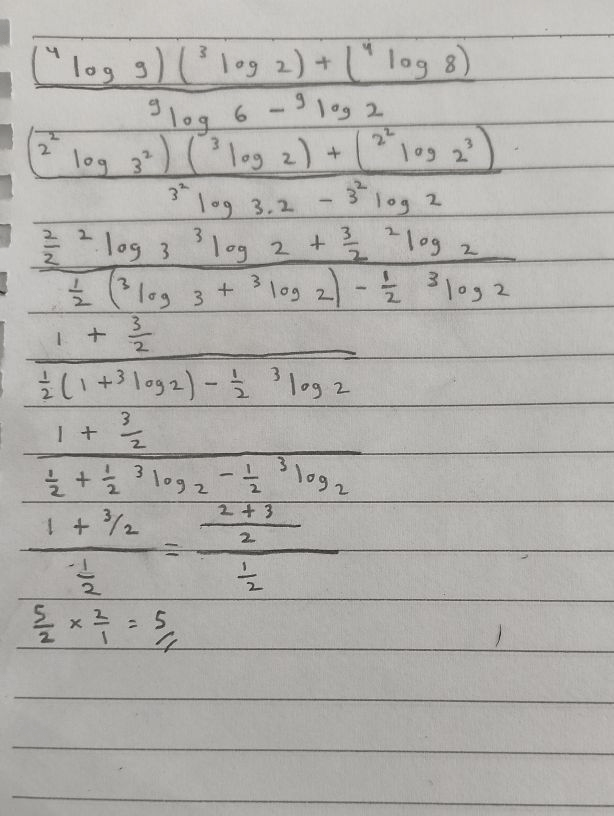 (⁴log 9)(³log 2) + (⁴log 8)
⁹log 6 - ⁹log 2
(2²log 3²)(³log 2) + (2²log 2³)
3²log 3.2 - 3²log 2
2/2 ²log 3 ³log 2 + 3/2 ²log 2
1/2 (³log 3 + ³log 2) - 1/2 ³log 2
1 + 3/2
1/2 (1 + ³log 2) - 1/2 ³log 2
1 + 3/2
1/2 + 1/2 ³log 2 - 1/2 ³log 2
1 + 3/2 = 2 + 3
2
1/2 1/2
5/2 × 2/1 = 5